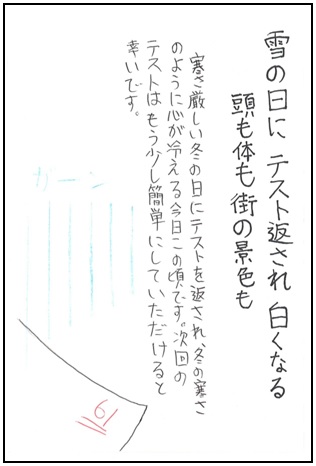 雪の日に テスト返され 白くなる
頭も体も街の景色も
寒さ厳しい冬の日にテストを返され、冬の寒さ
のように心が冷える今日この頃です。次回の
テストはもう少し簡単にしていただけると
幸いです。
ガーン
16